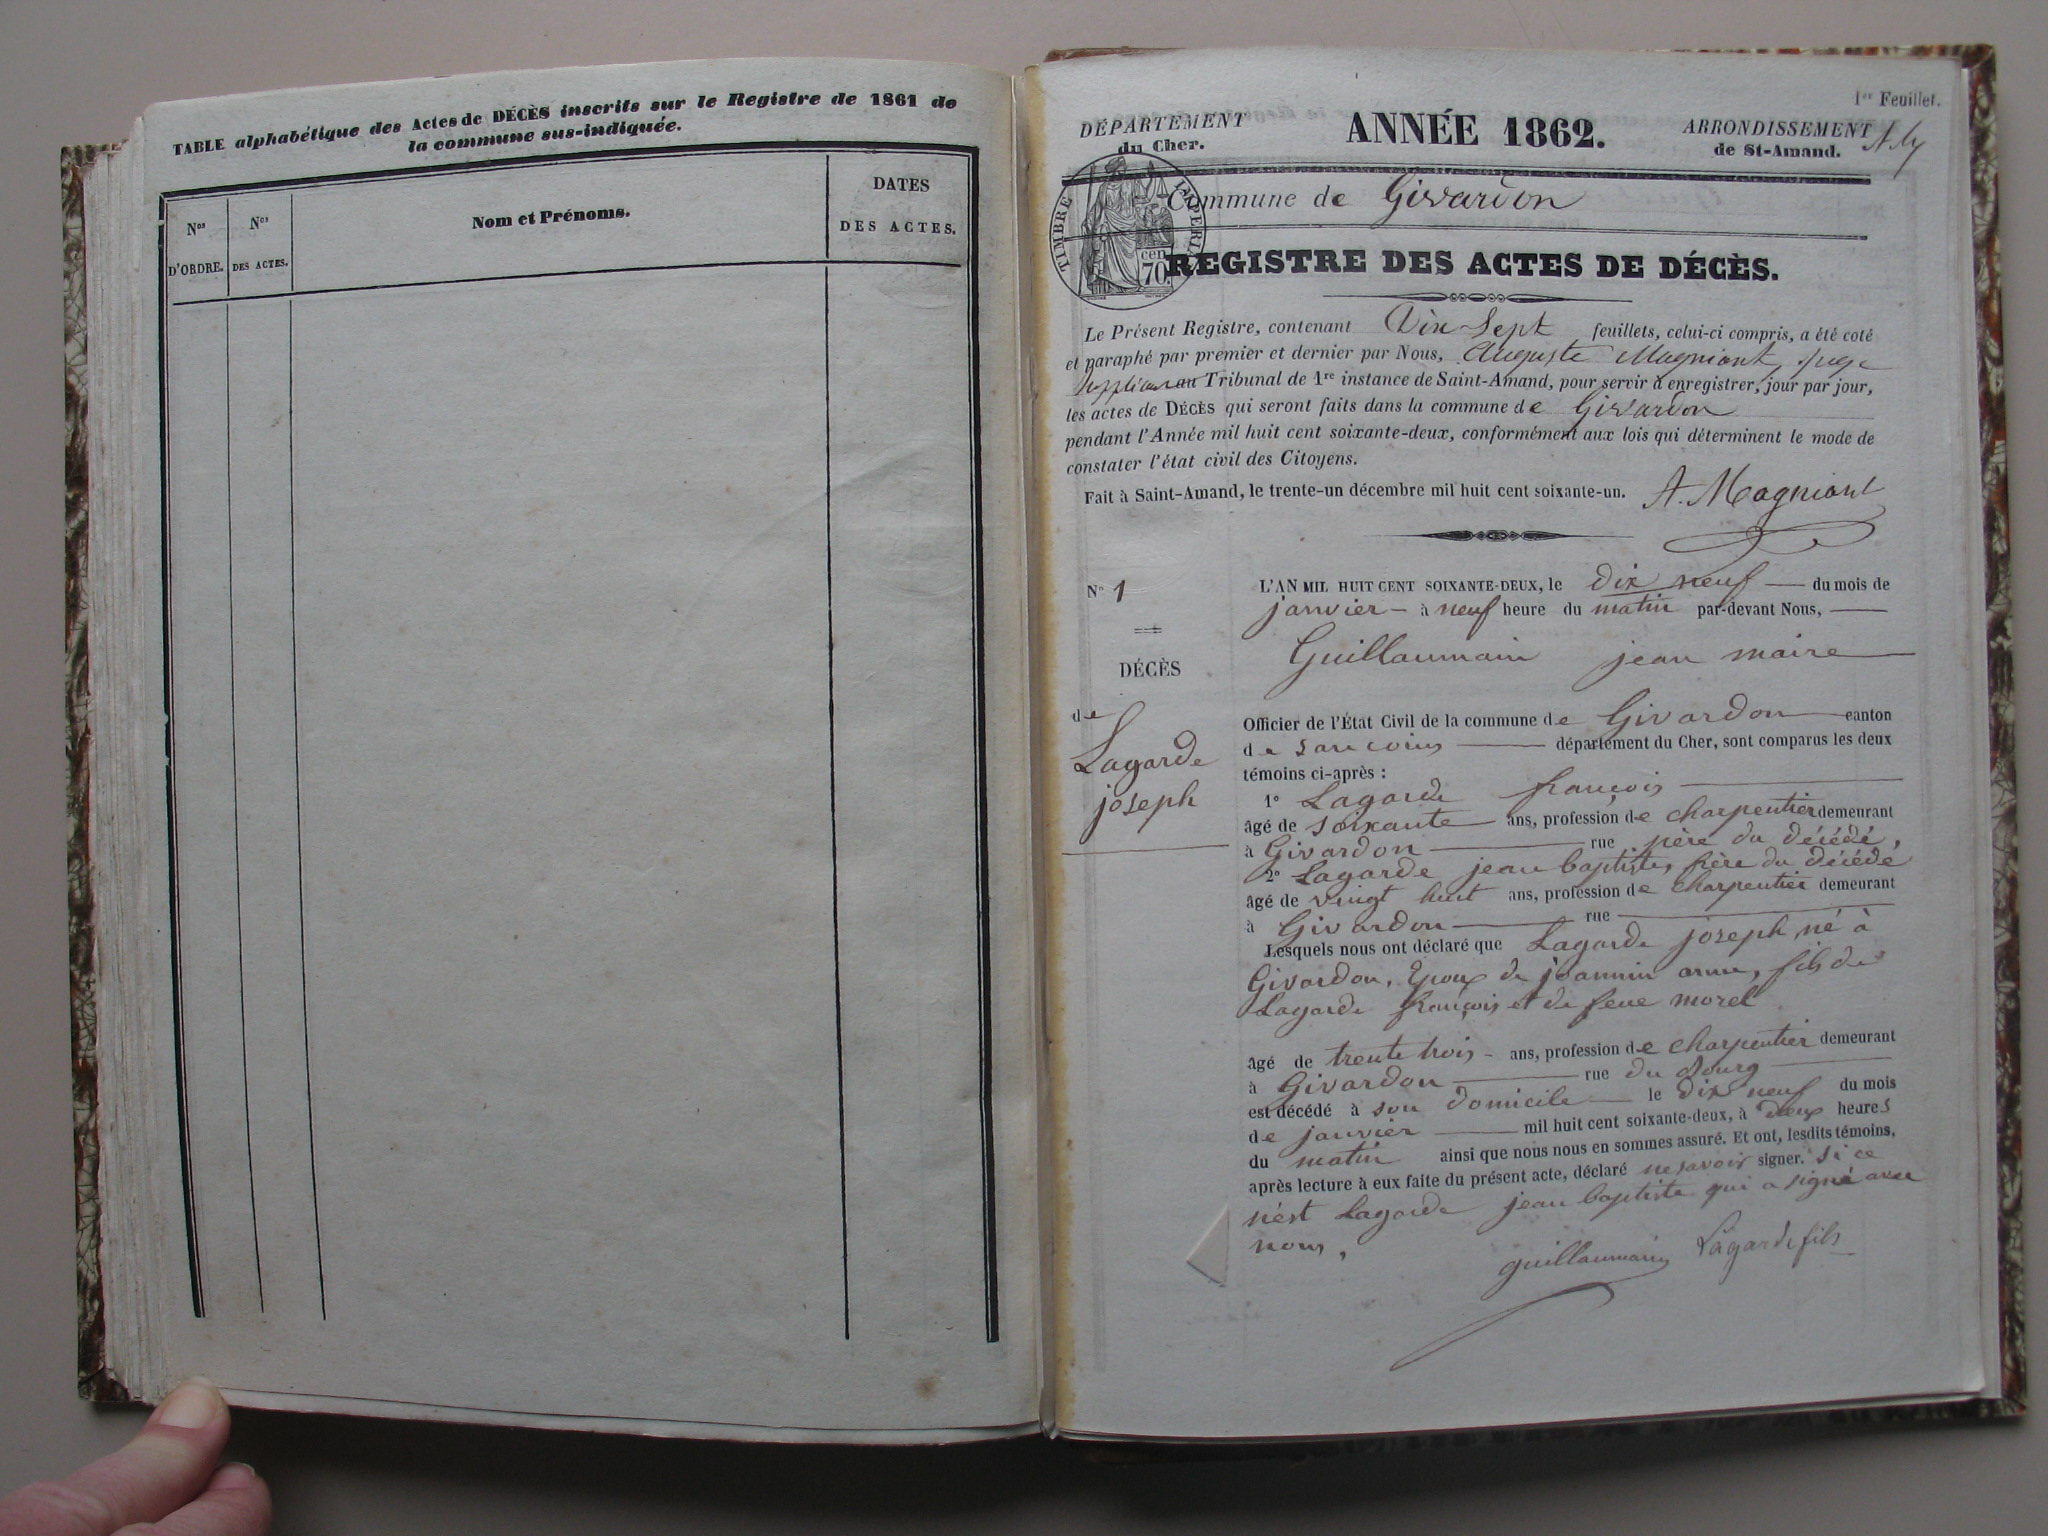 TABLE alphabétique des Actes de DÉCÈS inscrits sur le Registre de 1861 de
la commune sus-indiquée.
Nos D'ORDRE.
Nos DES ACTES.
Nom et Prénoms.
DATES DES ACTES.
1er Feuillet.
DÉPARTEMENT du Cher.
ANNÉE 1862.
ARRONDISSEMENT de St-Amand.
TIMBRE IMPERIAL
70 cen
Commune de Givardon
REGISTRE DES ACTES DE DÉCÈS.
Le Présent Registre, contenant Dix Sept feuillets, celui-ci compris, a été coté
et paraphé par premier et dernier par Nous, Auguste Magniant, Juge
suppléant au Tribunal de 1re instance de Saint-Amand, pour servir à enregistrer, jour par jour,
les actes de DÉCÈS qui seront faits dans la commune de Givardon
pendant l'Année mil huit cent soixante-deux, conformément aux lois qui déterminent le mode de
constater l'état civil des Citoyens.
Fait à Saint-Amand, le trente-un décembre mil huit cent soixante-un. A. Magniant
No 1
DÉCÈS
de
Lagarde
joseph
L'AN MIL HUIT CENT SOIXANTE-DEUX, le dix neuf du mois de
janvier à neuf heure du matin par-devant Nous,
Guillaumain jean maire
Officier de l'État Civil de la commune de Givardon canton
de sancoins département du Cher, sont comparus les deux
témoins ci-après :
1o Lagarde françois
âgé de soixante ans, profession de charpentier demeurant
à Givardon rue père du décédé,
2o Lagarde jean baptiste, frère du décédé
âgé de vingt huit ans, profession de charpentier demeurant
à Givardon rue
Lesquels nous ont déclaré que Lagarde joseph né à
Givardon, Epoux de joannin anne, fils de
Lagarde françois et de feue morel
âgé de trente trois ans, profession de charpentier demeurant
à Givardon rue du Bourg
est décédé à son domicile le dix neuf du mois
de janvier mil huit cent soixante-deux, à deux heures
du matin ainsi que nous nous en sommes assuré. Et ont, lesdits témoins,
après lecture à eux faite du présent acte, déclaré ne savoir signer. si ce
n'est Lagarde jean baptiste qui a signé avec
nous,
guillaumain Lagarde fils